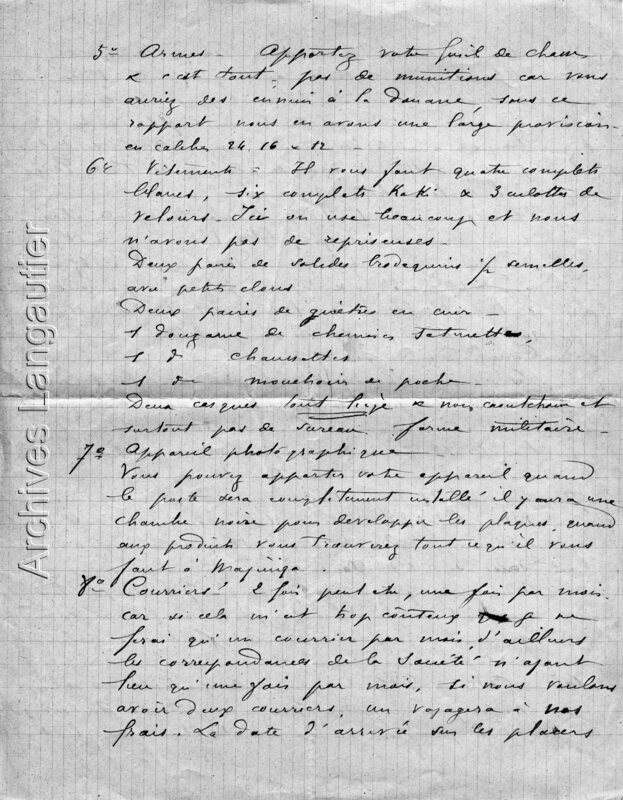 5º Armes - Apportez votre fusil de chasse
& c'est tout, pas de munitions car vous
auriez des ennuis à la douane, sous ce
rapport nous en avons une large provision
en calibre 24, 16 & 12 -
6º Vêtements = Il vous faut quatre complets
blancs, six complets Kaki & 3 culottes de
velours - Ici on use beaucoup et nous
n'avons pas de repriseuses -
Deux paires de solides brodequins semelles,
avec petits clous
Deux paires de guêtres en cuir -
1 douzaine de chemises satinette,
1 dº chaussettes
1 dº mouchoirs de poche -
Deux casques tout liège & non caoutchouc et
surtout pas de sureau forme militaire -
7º Appareil photographique
Vous pouvez apporter votre appareil quand
le poste sera complètement installé il y aura une
chambre noire pour développer les plaques, quand
aux produits vous trouverez tout ce qu'il vous
faut à Majunga.
8º Courriers 2 fois peut être, une fois par mois
car si cela m'est trop coûteux je ne
ferai qu'un courrier par mois, d'ailleurs
les correspondances de la Société n'ayant
lieu qu'une fois par mois, si nous voulons
avoir deux courriers, un voyagera à nos
frais. La date d'arrivée sur les placers
Archives Langautier